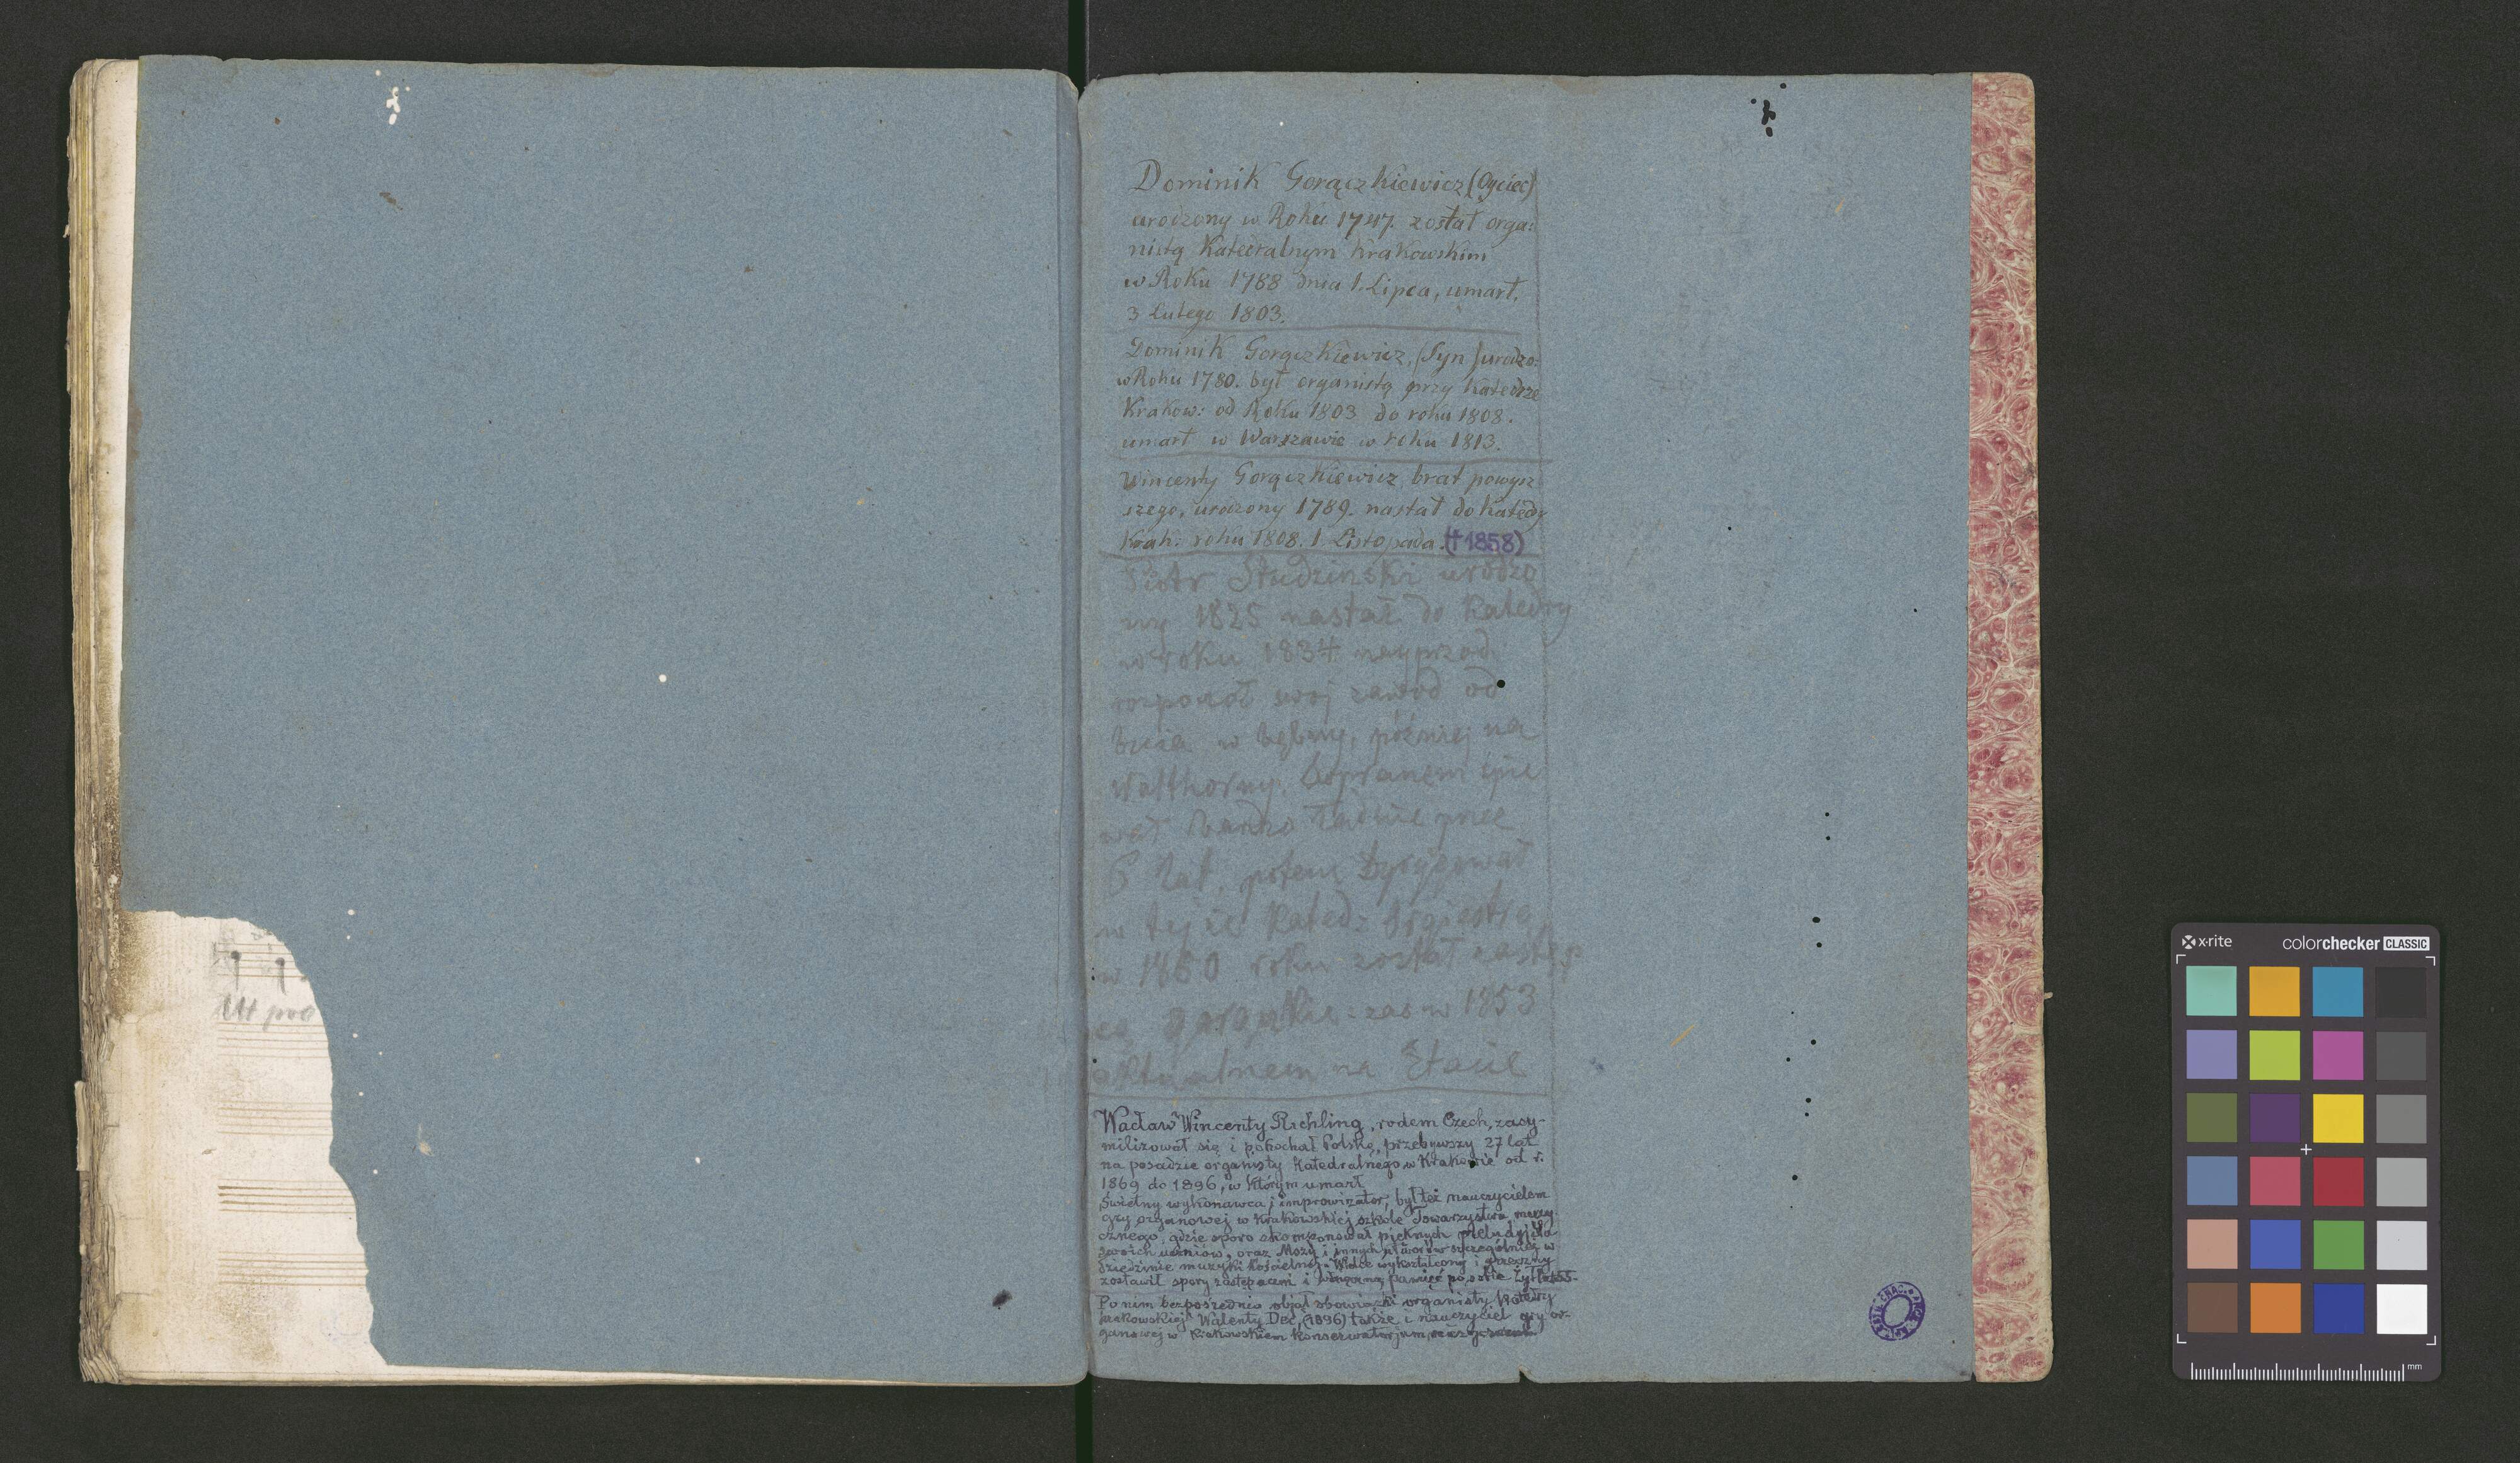 Dominik Gorączkiewicz (Oyciec)
urodzony w Roku 1747. został orga:
nistą Katedralnym Krakowskim
w Roku 1788 dnia 1. Lipca, umarł,
3 Lutego 1803.
Dominik Gorączkiewicz, (Syn) urodzo:
w Roku 1780. był organistą przy Katedrze
Krakow: od Roku 1803 do roku 1808.
umarł w Warszawie w roku 1813.
Wincenty Gorączkiewicz, brat powyż
szego, urodzony 1789. nastał do Katedy
Krak. roku 1808. 1. Listopada. († 1858)
Piotr Studzinski urodzo
ny 1825 nastał do Katedry
w roku 1834 nayprzod
swoj zawod od
bicia w bębny, później na
Walthorny. Sopranem spie
wał bardzo ładnie prze
6 lat, potem Dyryżował
w tej że Kated:
w 1850 roku został zastęp
zas w 1853
aktualnem na Etacie
Wacław Wincenty Richling, rodem Czech, zasy-
milizował się i pokochał Polskę, przebywszy 27 lat
na posadzie organisty Katedralnego w Krakowie od r.
1869 do 1896, w którym umarł.
Świetny wykonawca i improwizator, był też nauczycielem
gry organowej w Krakowskiej szkole Towarzystwa muzy-
cznego, gdzie sporo skomponował pięknych preludyj dla
swoich uczniów, oraz Mszy i innych utworów szczególniej w
dziedzinie muzyki kościelnej. Wielce wykształcony i
zostawił spory zastęp uczni i pamięć po sobie
Po nim bezpośrednio objął obowiązki organisty Katedry
krakowskiej Walenty Dec, (1896) także i nauczyciel gry or-
ganowej w Krakowskiem Konserwatorjum
x-rite
colorchecker CLASSIC
mm